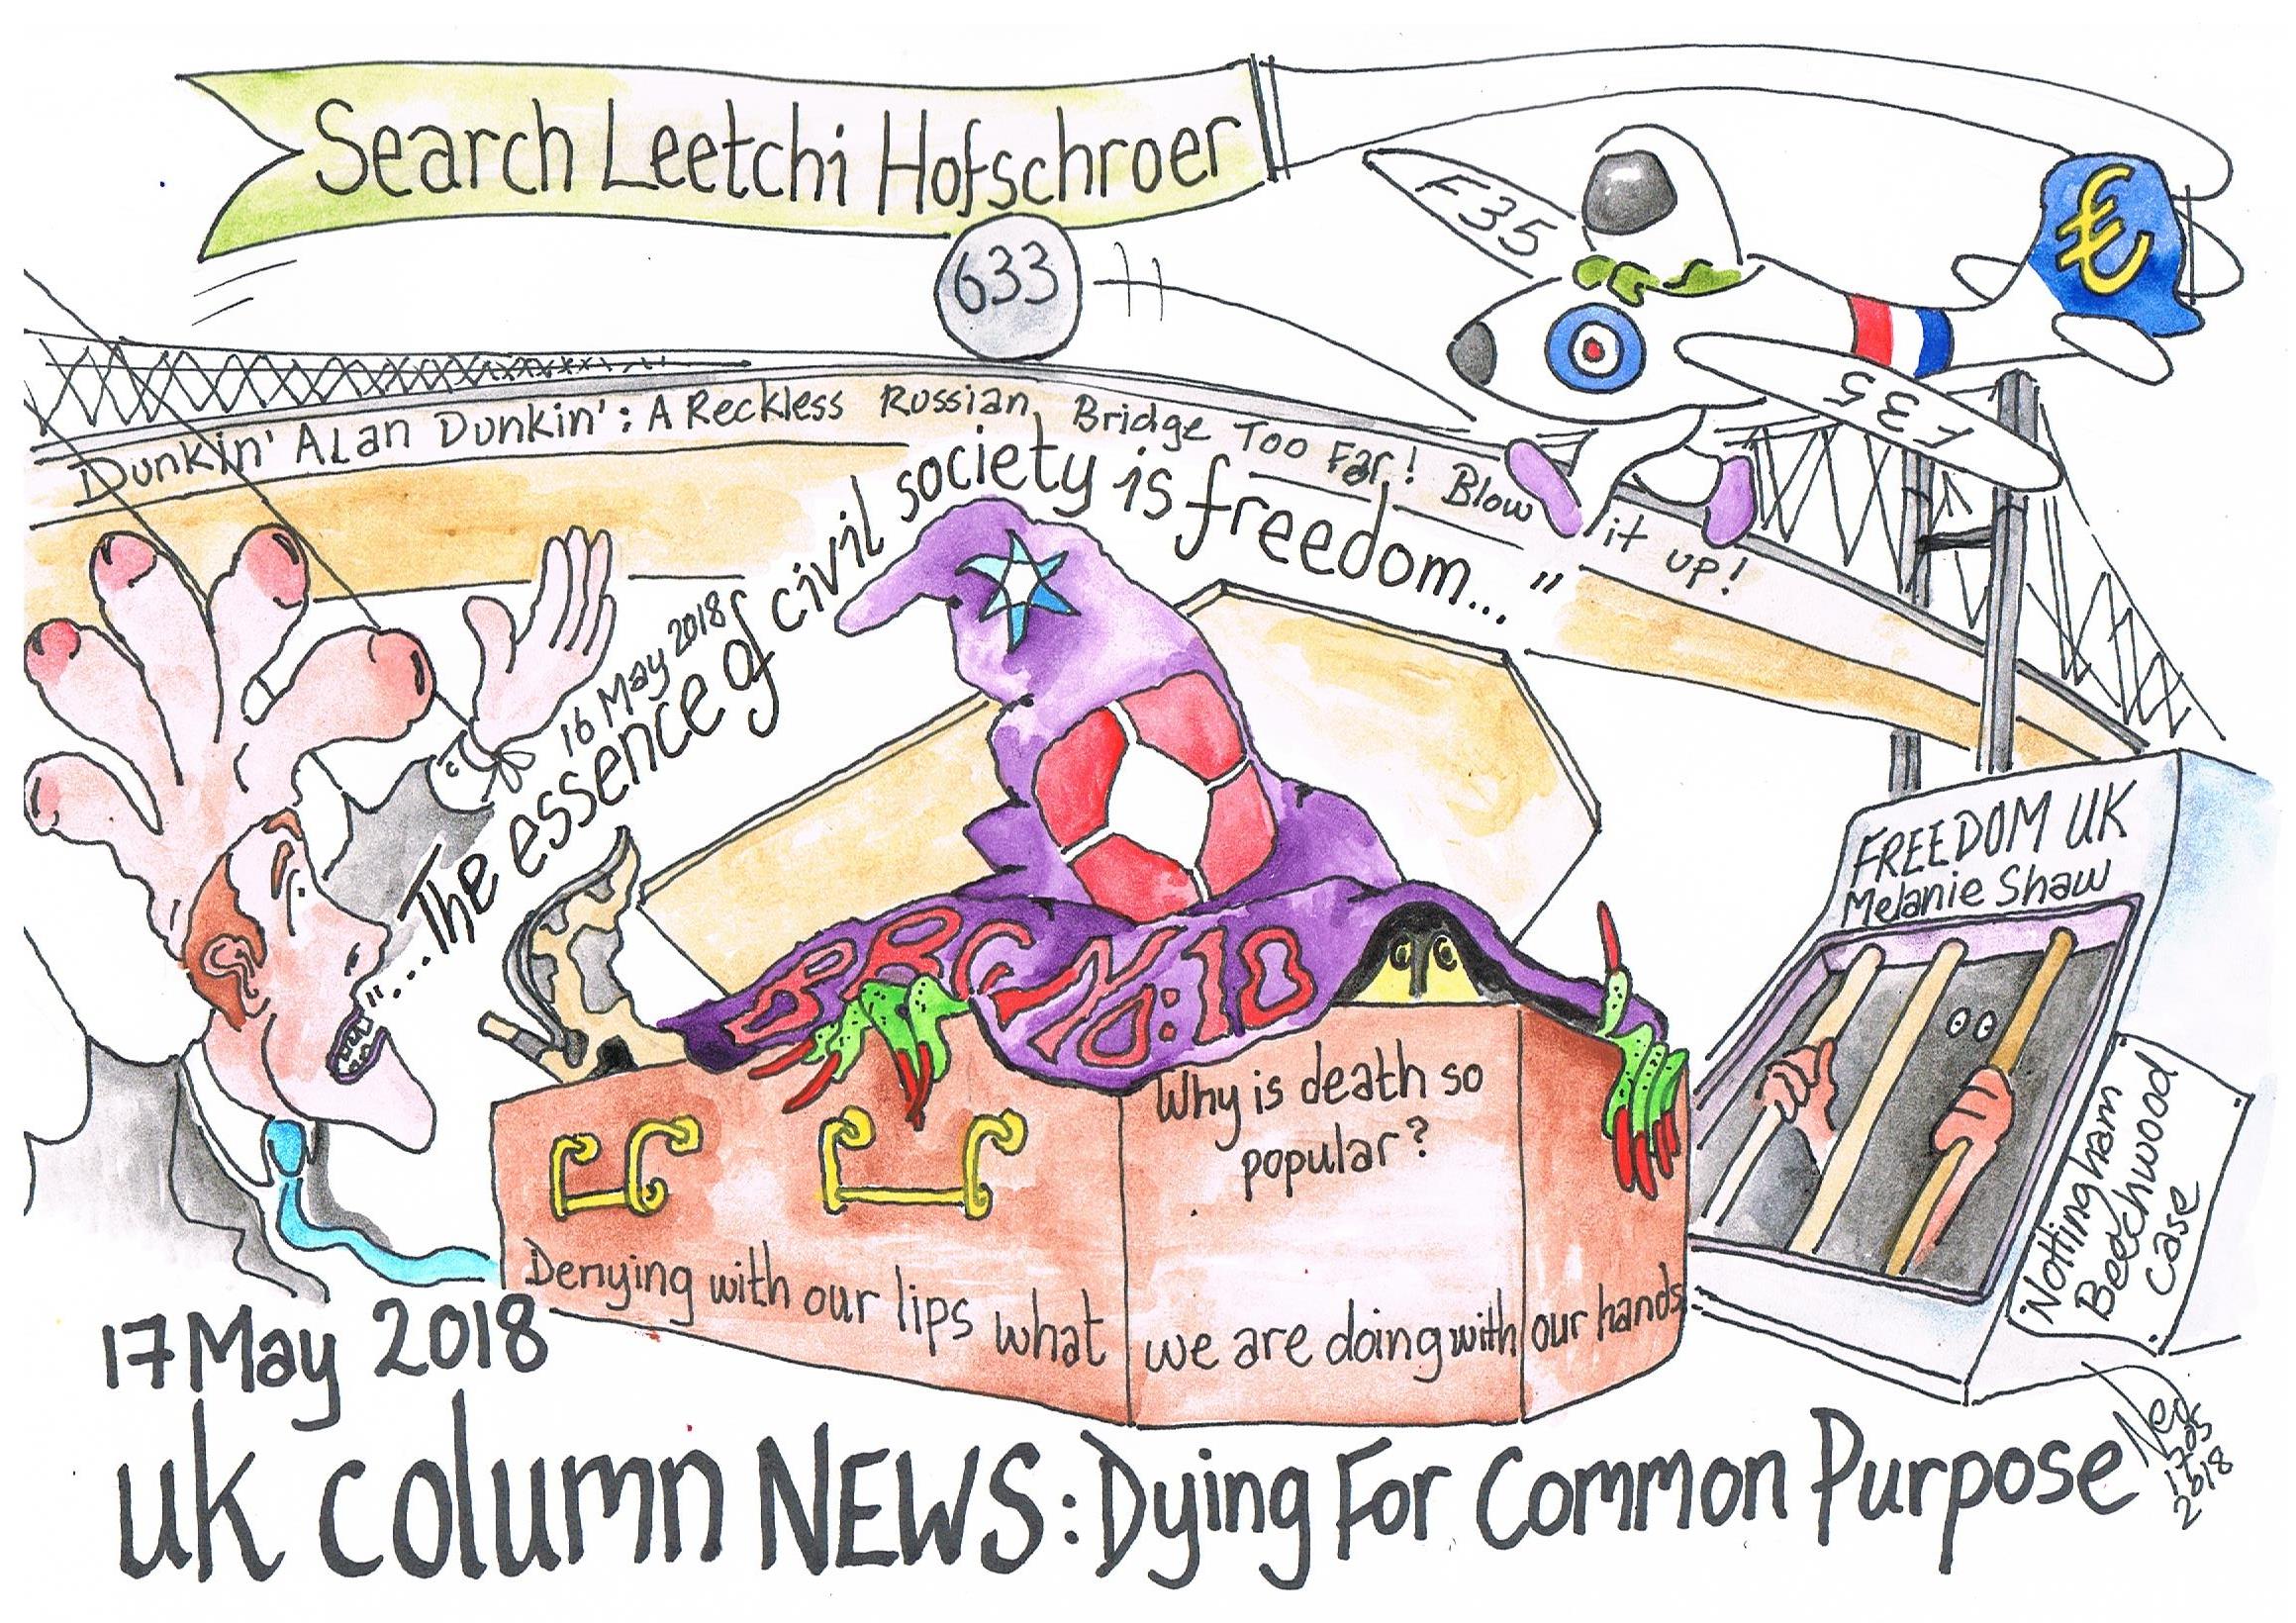 Search Leetchi Hofschroer
F35
€
633
F35
Dunkin' Alan Dunkin': A Reckless Russian Bridge Too Far! Blow it up!
16 May 2018
"...The essence of civil society is freedom..."
FREEDOM UK
Melanie Shaw
BRC No:10
Why is death so
popular?
Nottingham
Beechwood
Case
Denying with our lips what we are doing with our hands
17 May 2018
UK Column NEWS: Dying For Common Purpose
1705
2018